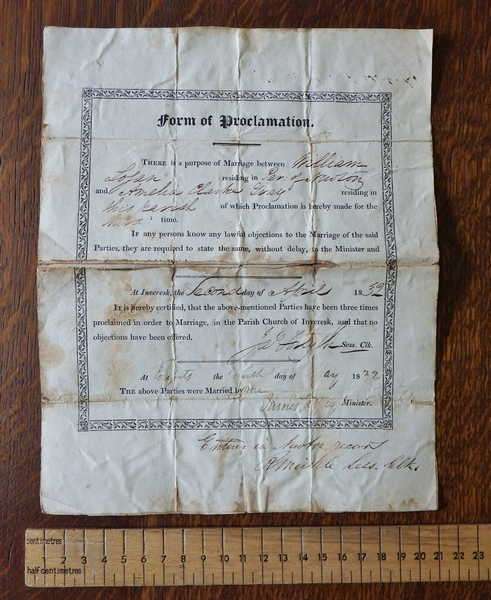 Form of Proclamation.
THERE is a purpose of Marriage between William
Logan residing in Par. of Newton
and Amelia residing in
this parish of which Proclamation is hereby made for the
time.
If any persons know any lawful objections to the Marriage of the said
Parties, they are required to state the same, without delay, to the Minister and
At Inveresk, the Second day of April 1839
It is hereby certified, that the above-mentioned Parties have been three times
proclaimed in order to Marriage, in the Parish Church of Inveresk, and that no
objections have been offered.
Sess. Clk.
At the day of 1839
THE above Parties were Married by me
James Minister.
in Newton record
Sess. Clk.
centimetres
1 2 3 4 5 6 7 8 9 10 11 12 13 14 15 16 17 18 19 20 21 22 23
half centimetres